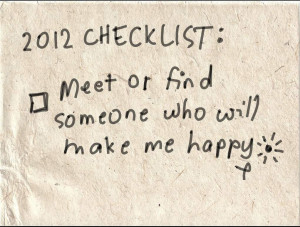 2012 CHECKLIST:
Meet or find
someone who will
make me happy